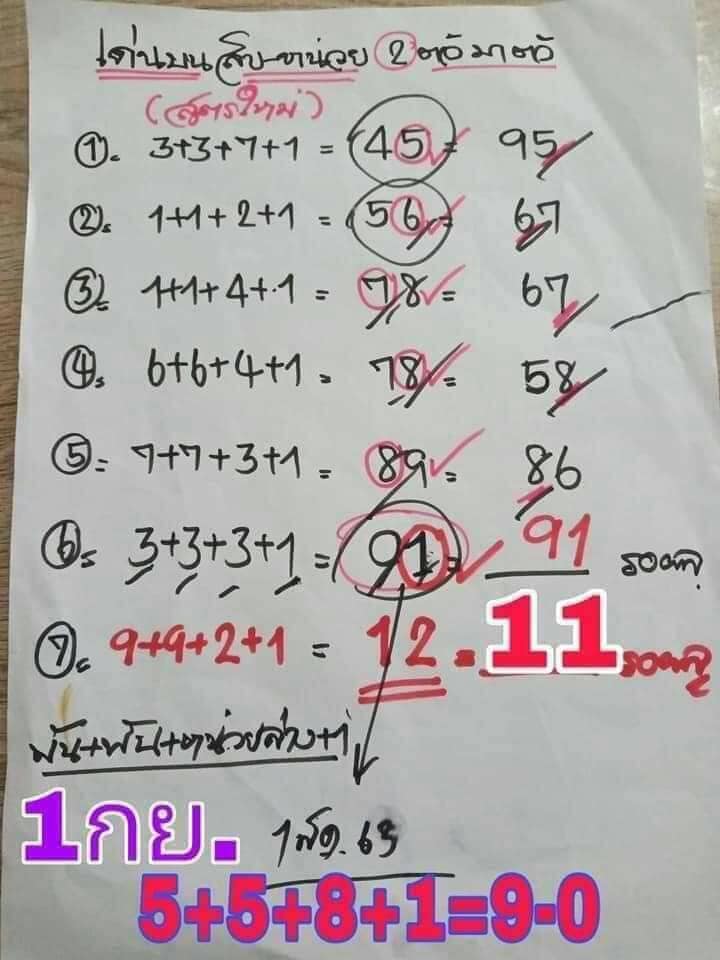 เด่นบน สิบ-หน่วย 2 ตัว มา ตัว
(สูตรใหม่)
①= 3+3+7+1 = 45 = 95
②= 1+1+2+1 = 56 = 67
③= 1+1+4+1 = 78 = 67
④= 6+6+4+1 = 78 = 58
⑤= 7+7+3+1 = 89 = 86
⑥= 3+3+3+1 = 91 = 91 รอดู
⑦= 9+9+2+1 = 12 = 11 รอดู
พัน+พัน+หน่วยล่าง+1
1กย. 1 สค. 63
5+5+8+1=9-0